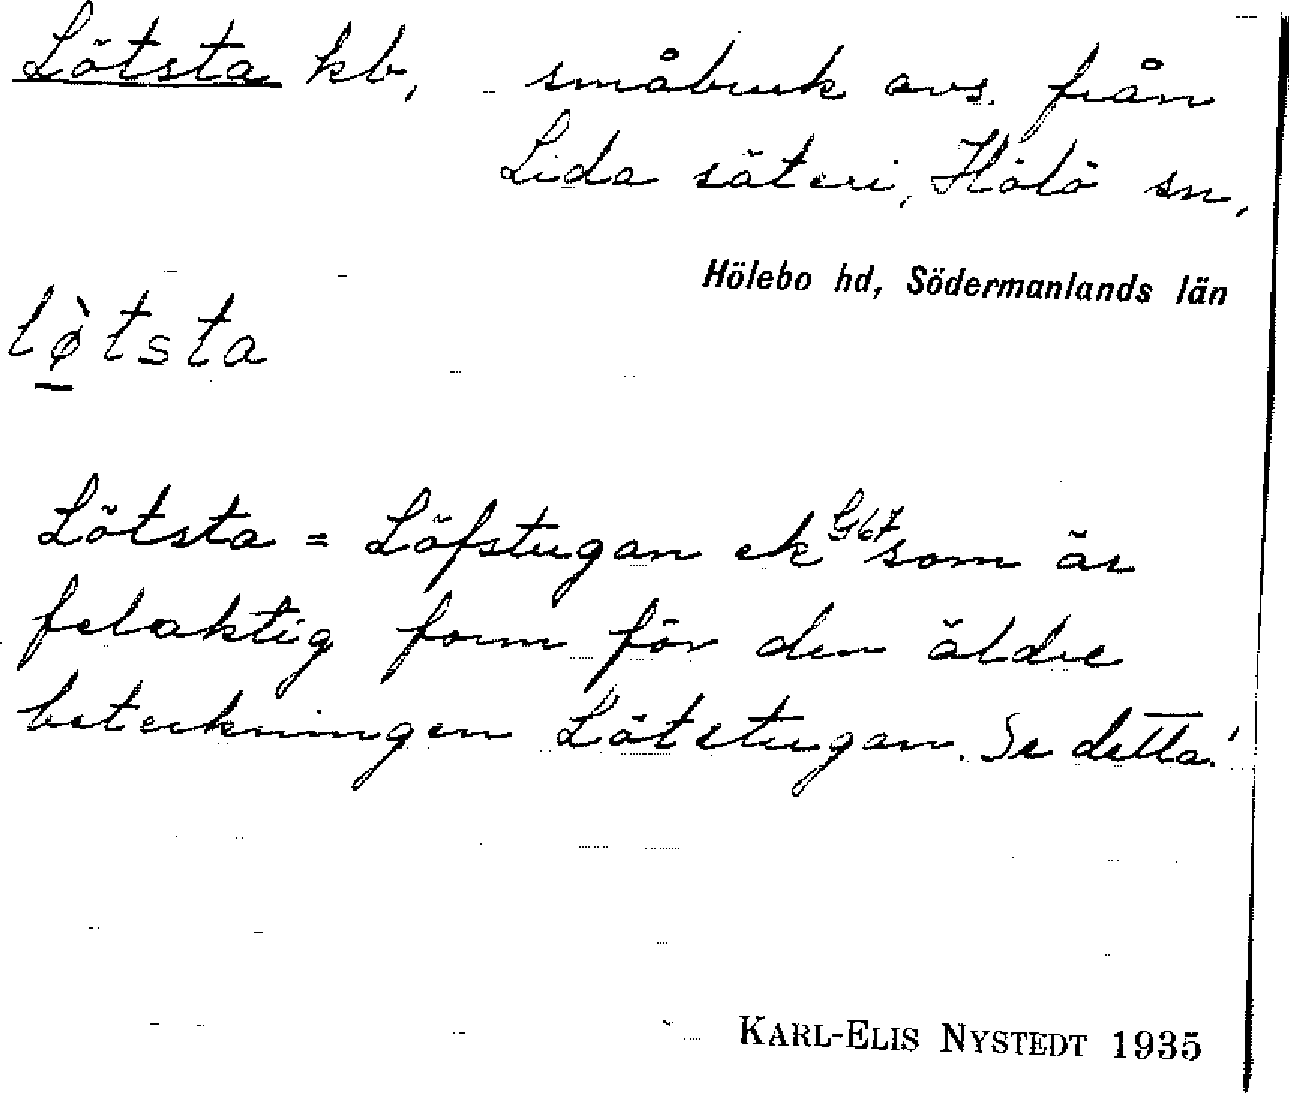 Lötsta kb, småbruk avs. från
Lida säteri, Hölö sn,
Hölebo hd, Södermanlands län
lø̀tsta
Lötsta = Löfstugan ek G67 som är
felaktig form för den äldre
beteckningen Lötstugan. Se detta!
KARL-ELIS NYSTEDT 1935